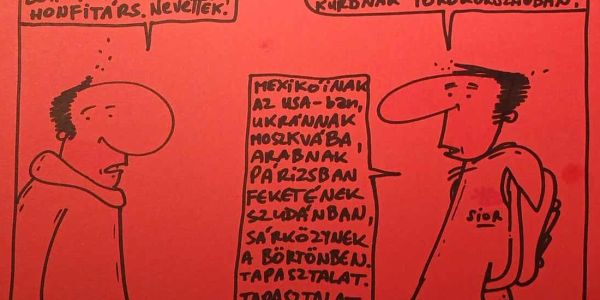 HONFITÁRS. NEVETTEK.
KURDNAK TÖRÖKORSZÁGBAN.
MEXIKÓINAK
AZ USA-BAN,
UKRÁNNAK
MOSZKVÁBA,
ARABNAK
PÁRIZSBAN
FEKETÉNEK
SZUDÁNBAN,
SÁRKÖZYNEK
A BÖRTÖNBEN.
TAPASZTALAT.
TAPASZTALAT
SIOR